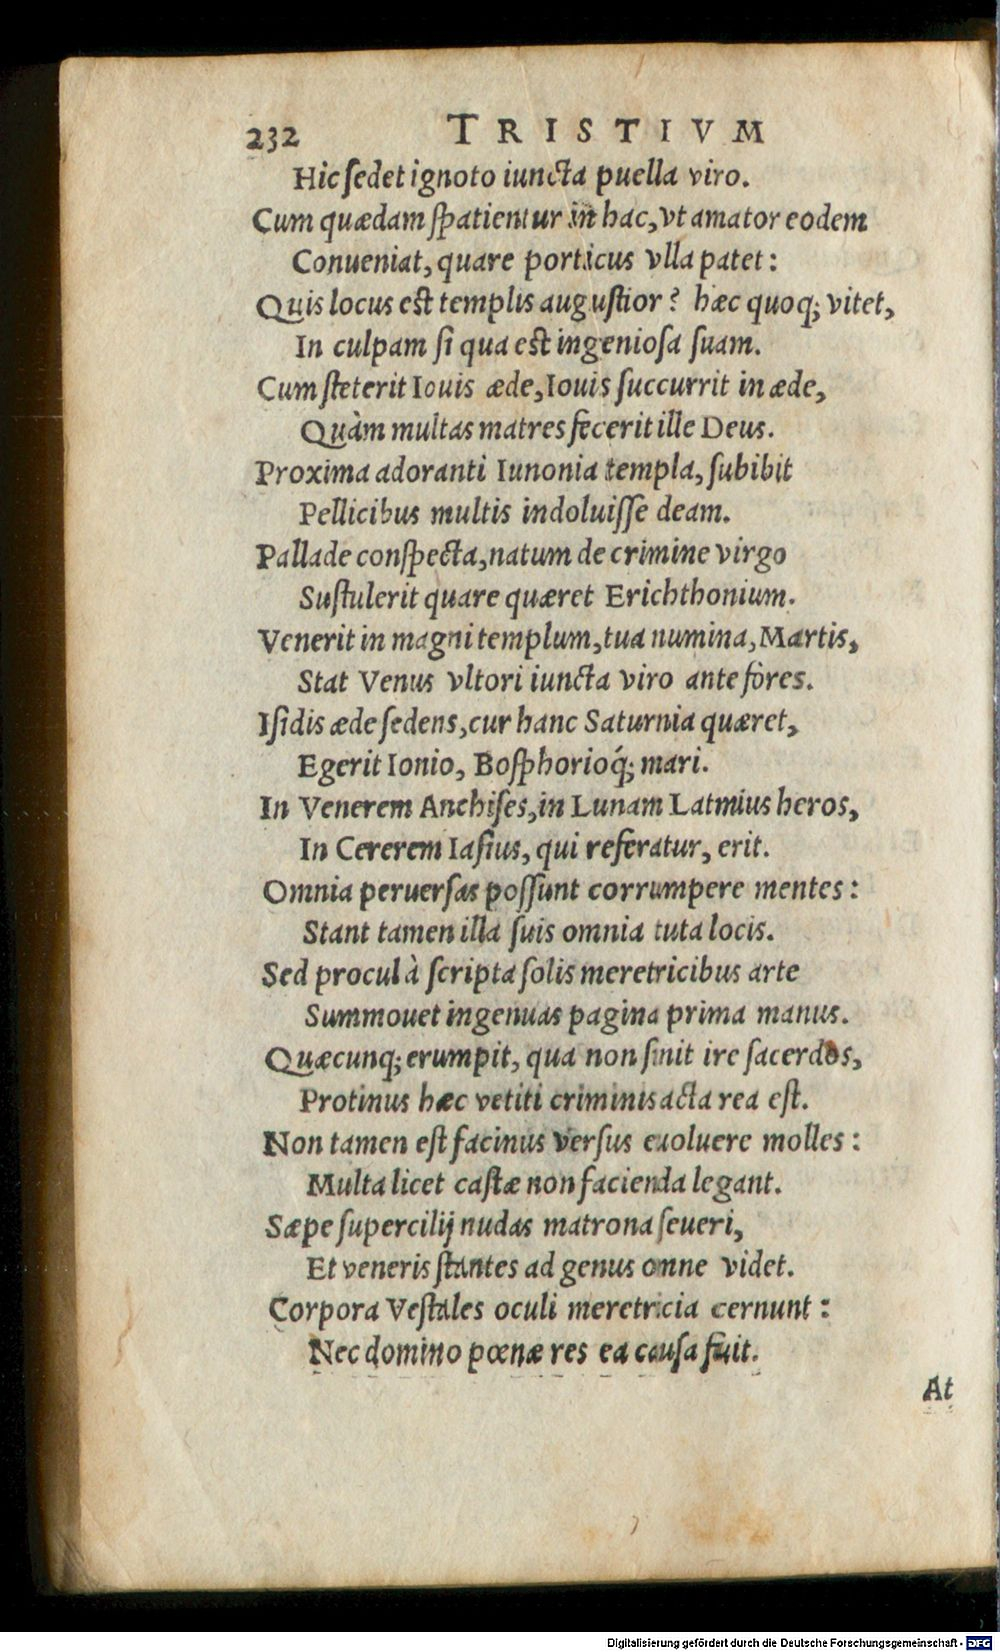 232 TRISTIVM
Hic ſedet ignoto iuncta puella viro.
Cum quædam ſpatientur in hac, vt amator eodem
Conueniat, quare porticus vlla patet:
Quis locus est templis auguſtior? hæc quoq; vitet,
In culpam ſi qua est ingenioſa ſuam.
Cum ſteterit Iouis æde, Iouis ſuccurrit in æde,
Quàm multas matres fecerit ille Deus.
Proxima adoranti Iunonia templa, ſubibit
Pellicibus multis indoluiſſe deam.
Pallade conſpecta, natum de crimine virgo
Suſtulerit quare quæret Erichthonium.
Venerit in magni templum, tua numina, Martis,
Stat Venus vltori iuncta viro ante fores.
Iſidis æde ſedens, cur hanc Saturnia quæret,
Egerit Ionio, Boſphorioq́; mari.
In Venerem Anchiſes, in Lunam Latmius heros,
In Cererem Iaſius, qui referatur, erit.
Omnia peruerſas poſſunt corrumpere mentes:
Stant tamen illa ſuis omnia tuta locis.
Sed procul à ſcripta ſolis meretricibus arte
Summouet ingenuas pagina prima manus.
Quæcunq; erumpit, qua non ſinit ire ſacerdos,
Protinus hæc vetiti criminis acta rea eſt.
Non tamen eſt facinus verſus euoluere molles:
Multa licet caſtæ non facienda legant.
Sæpe ſupercilij nudas matrona ſeueri,
Et veneris ſtantes ad genus omne videt.
Corpora Veſtales oculi meretricia cernunt:
Nec domino pœnæ res ea cauſa fuit.
At
Digitalisierung gefördert durch die Deutsche Forschungsgemeinschaft - DFG